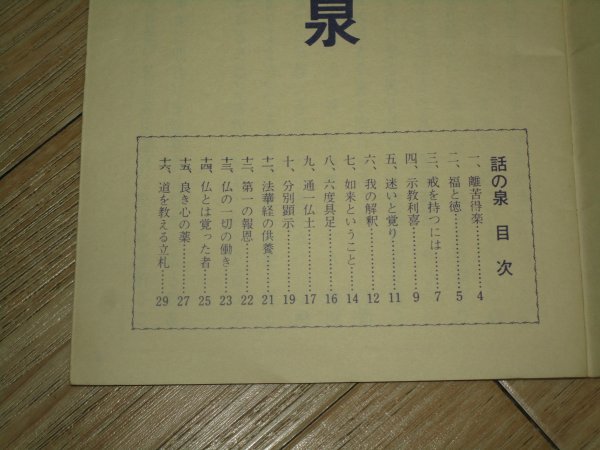 泉
話の泉 目次
一、離苦得楽………4
二、福と徳………5
三、戒を持つには………7
四、示教利喜………9
五、迷いと覚り………11
六、我の解釈………12
七、如来ということ………14
八、六度具足………16
九、通一仏土………17
十、分別顕示………19
十一、法華経の供養………21
十二、第一の報恩………22
十三、仏の一切の働き………23
十四、仏とは覚った者………25
十五、良き心の薬………27
十六、道を教える立札………29